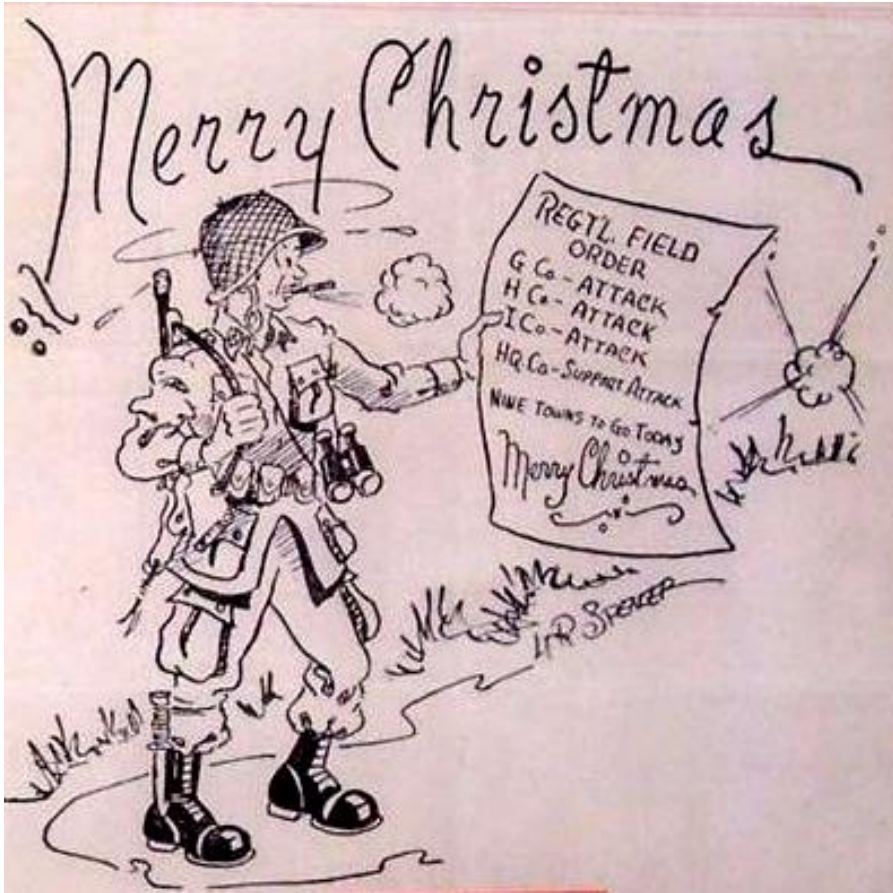 Merry Christmas
REGT'L. FIELD
ORDER
G Co - ATTACK
H Co - ATTACK
I Co - ATTACK
HQ. Co - SUPPORT ATTACK
NINE TOWNS TO GO TODAY
Merry Christmas
SPENCER